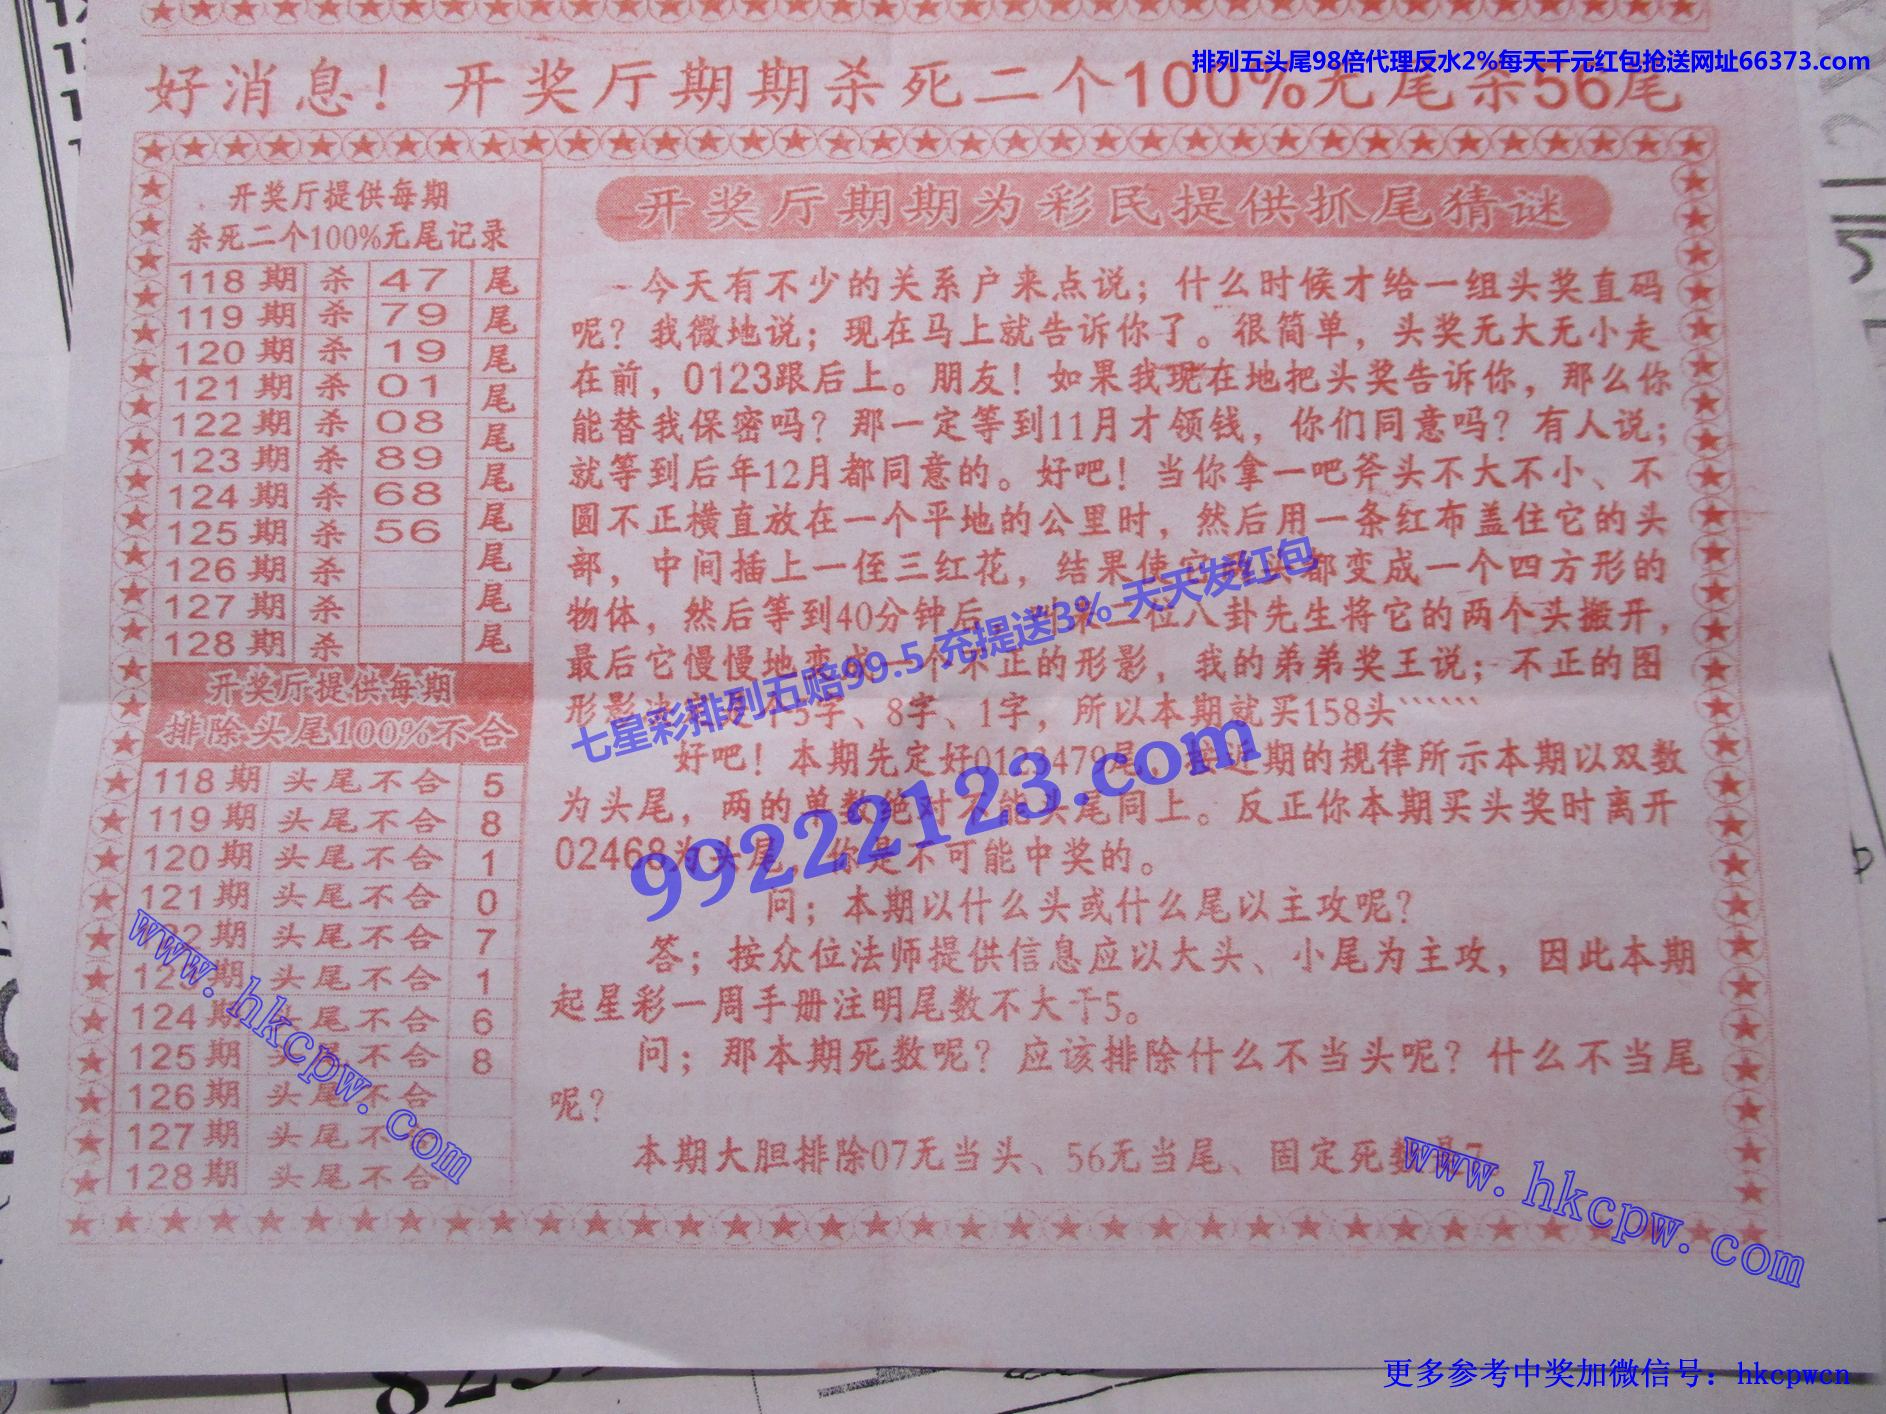 排列五头尾98倍代理反水2%每天千元红包抢送网址66373.com
好消息！开奖厅期期杀死二个100%无尾杀56尾
开奖厅提供每期
杀死二个100%无尾记录
118期 杀 47 尾
119期 杀 79 尾
120期 杀 19 尾
121期 杀 01 尾
122期 杀 08 尾
123期 杀 89 尾
124期 杀 68 尾
125期 杀 56 尾
126期 杀 尾
127期 杀 尾
128期 杀 尾
开奖厅提供每期
排除头尾100%不合
118期 头尾不合 5
119期 头尾不合 8
120期 头尾不合 1
121期 头尾不合 0
122期 头尾不合 7
123期 头尾不合 1
124期 头尾不合 6
125期 头尾不合 8
126期 头尾不合
127期 头尾不
128期 头尾不合
开奖厅期期为彩民提供抓尾猜谜
今天有不少的关系户来点说；什么时候才给一组头奖直码
呢？我微地说；现在马上就告诉你了。很简单，头奖无大无小走
在前，0123跟后上。朋友！如果我现在地把头奖告诉你，那么你
能替我保密吗？那一定等到11月才领钱，你们同意吗？有人说；
就等到后年12月都同意的。好吧！当你拿一吧斧头不大不小、不
圆不正横直放在一个平地的公里时，然后用一条红布盖住它的头
部，中间插上一侄三红花，结果使它 都变成一个四方形的
物体，然后等到40分钟后， 一位八卦先生将它的两个头搬开，
最后它慢慢地变成一个不正的形影，我的弟弟奖王说；不正的图
形影 5字、8字、1字，所以本期就买158头``````
好吧！本期先定好0123479尾，按近期的规律所示本期以双数
为头尾，两的单数绝对不能头尾同上。反正你本期买头奖时离开
02468为头尾，你是不可能中奖的。
问；本期以什么头或什么尾以主攻呢？
答；按众位法师提供信息应以大头、小尾为主攻，因此本期
起星彩一周手册注明尾数不大于5。
问；那本期死数呢？应该排除什么不当头呢？什么不当尾
呢？
本期大胆排除07无当头、56无当尾、固定死数是7
七星彩排列五赔99.5 充提送3% 天天发红包
99222123.com
www.hkcpw.com
www.hkcpw.com
更多参考中奖加微信号：hkcpwcn